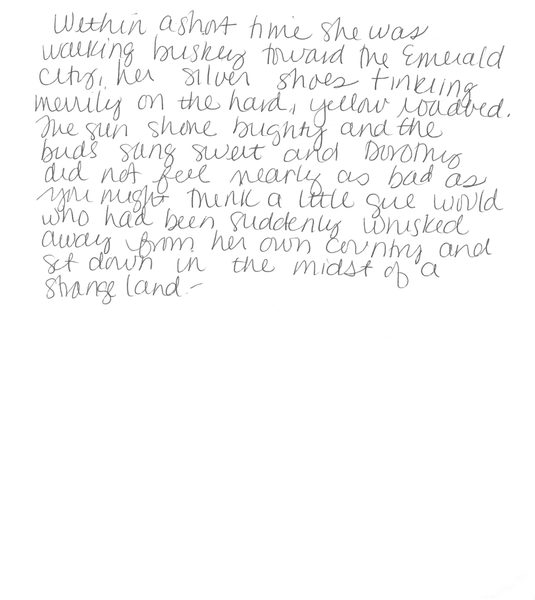 Within a short time she was
walking briskly toward the Emerald
City, her silver shoes tinkling
merrily on the hard, yellow roadbed.
The sun shone brightly and the
birds sang sweet and Dorothy
did not feel nearly as bad as
you might think a little girl would
who had been suddenly whisked
away from her own country and
set down in the midst of a
strange land.-